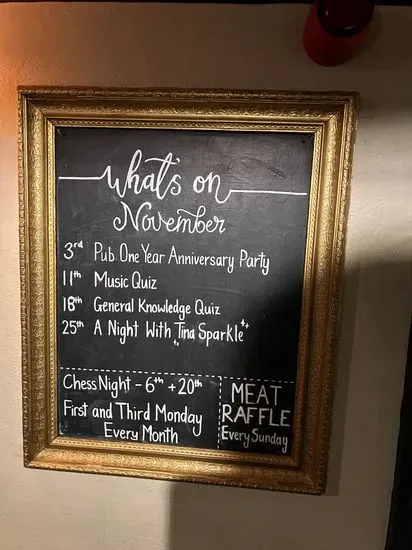 what's on
November
3rd Pub One Year Anniversary Party
11th Music Quiz
18th General Knowledge Quiz
25th A Night With Tina Sparkle
Chess Night - 6th + 20th
First and Third Monday
Every Month
MEAT
RAFFLE
Every Sunday